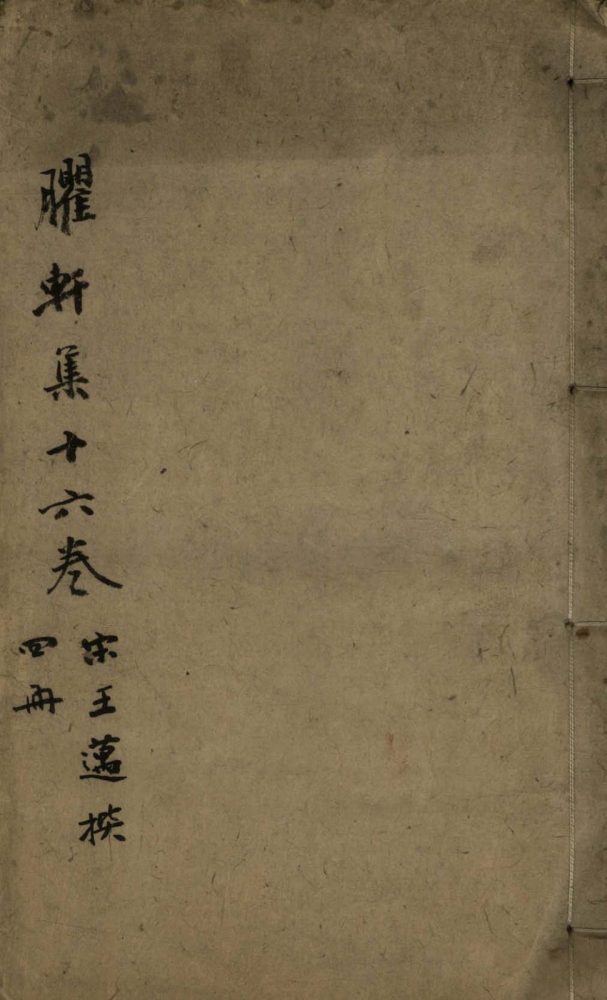 臞軒集十六卷
宋王邁撰
四冊